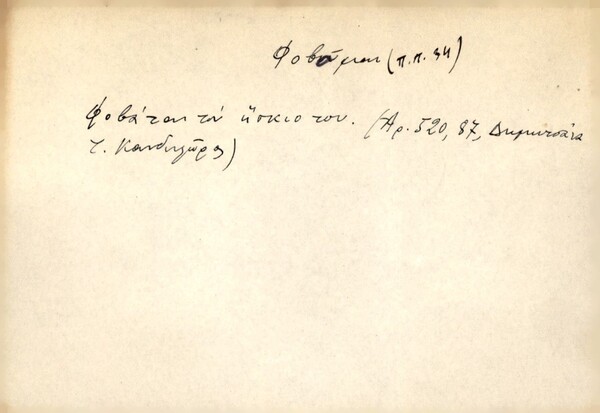 Φοβᾶμαι (π.π. 34)
Φοβᾶται τὸν ἥσκιο του. (Ἀρ. 520, 87, Δημητσάνα
Τ. Κανδηλῶρος)